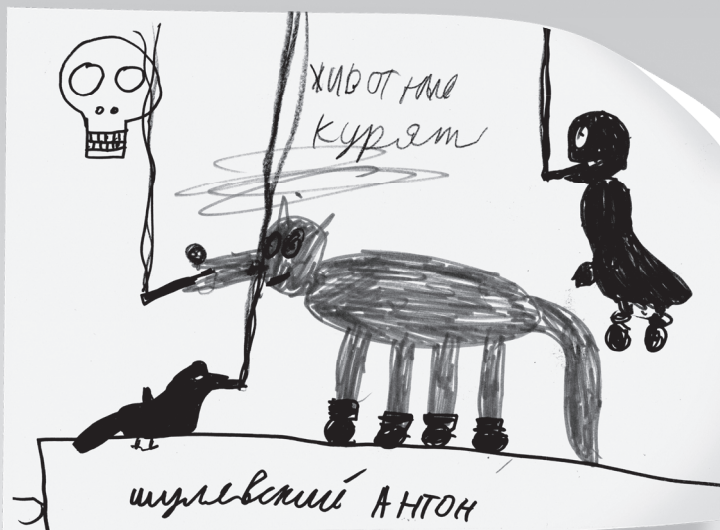 животные
курят
шулевский Антон